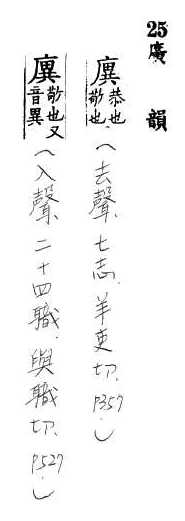 25廣韻
廙恭也敬也（去聲、七志、羊吏切、P357）
廙敬也又音異（入聲、二十四職、與職切、P527）